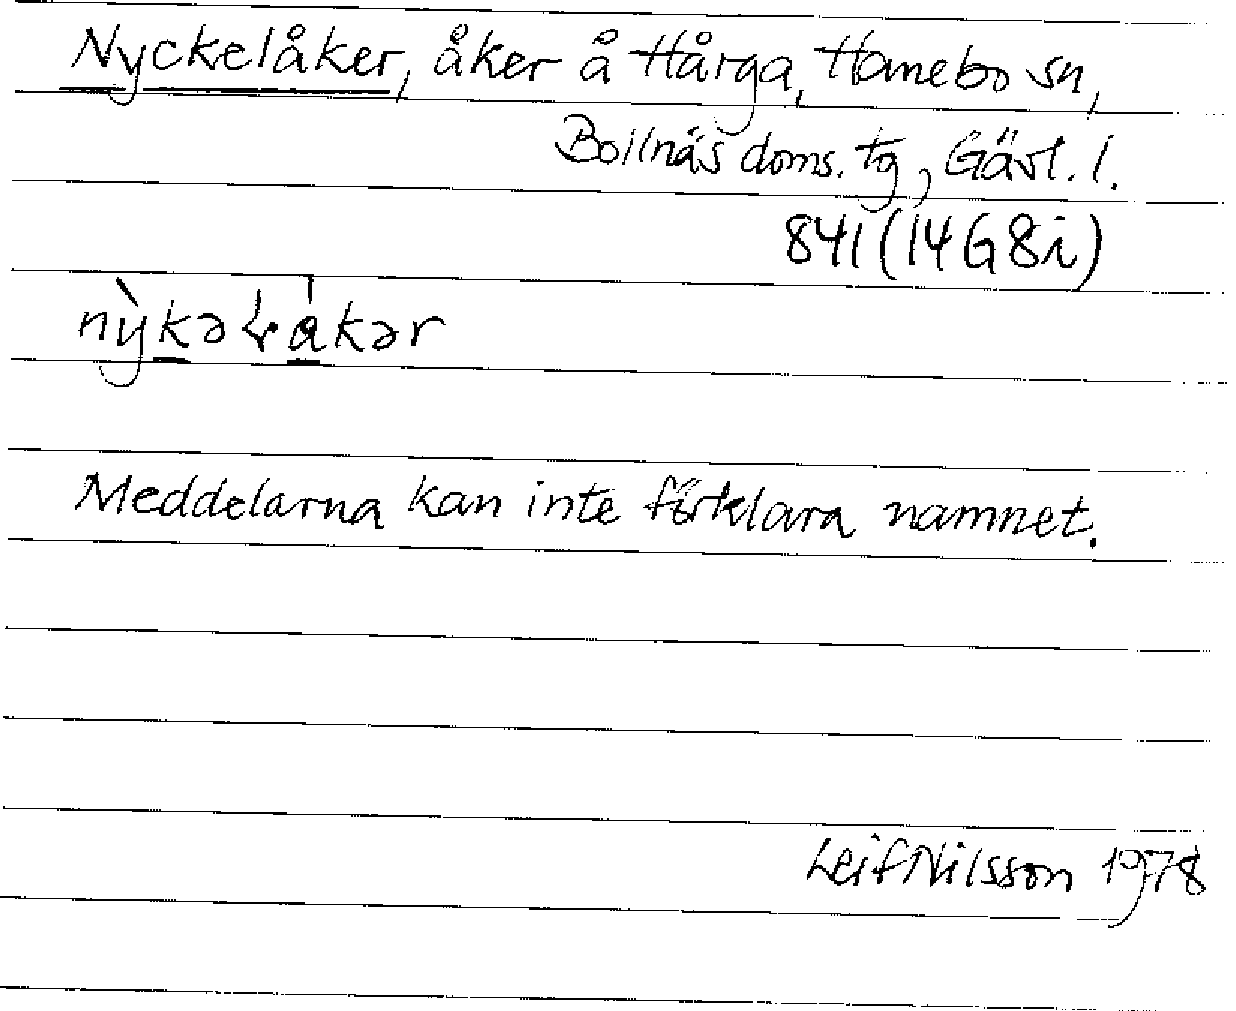 Nyckelåker, åker å Hårga, Hanebo sn,
Bollnäs doms. tg, Gävl. l.
841 (14 G 8i)
Meddelarna kan inte förklara namnet.
Leif Nilsson 1978